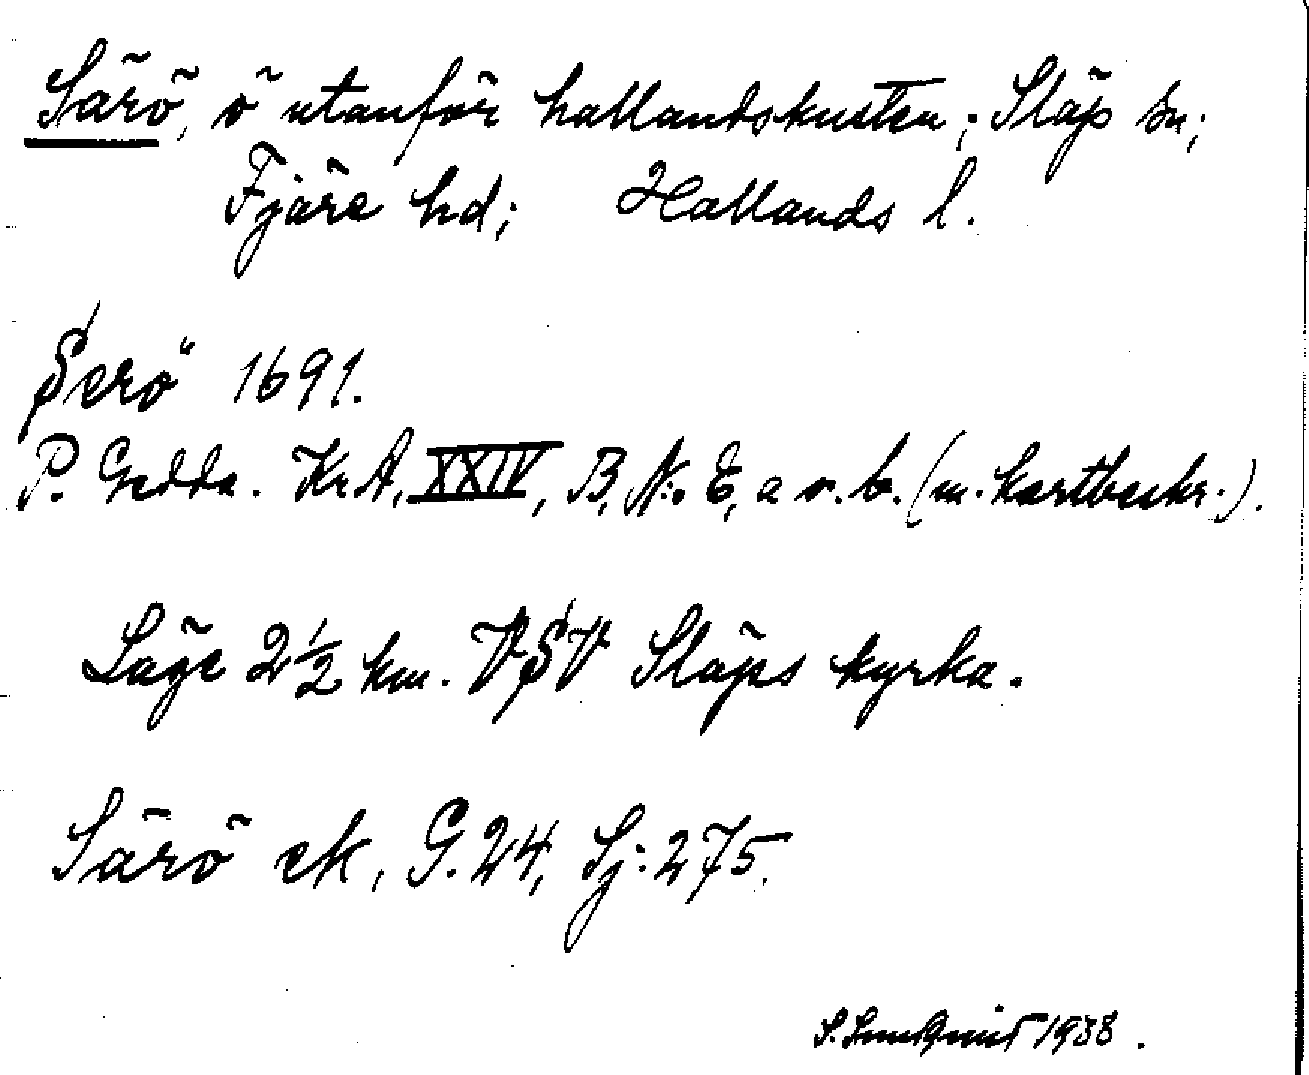 Särö, ö utanför hallandskusten; Släp sn;
Fjäre hd; Hallands l.
Serö 1691.
P. Gedda. Kr.A, XXIV, B, N:o 6, a o. b. (m. kartbeskr.).
Läge 2 1/2 km. VSV Släps kyrka.
Särö ek, G. 24, Sj: 275.
S. Lundqvist 1938.